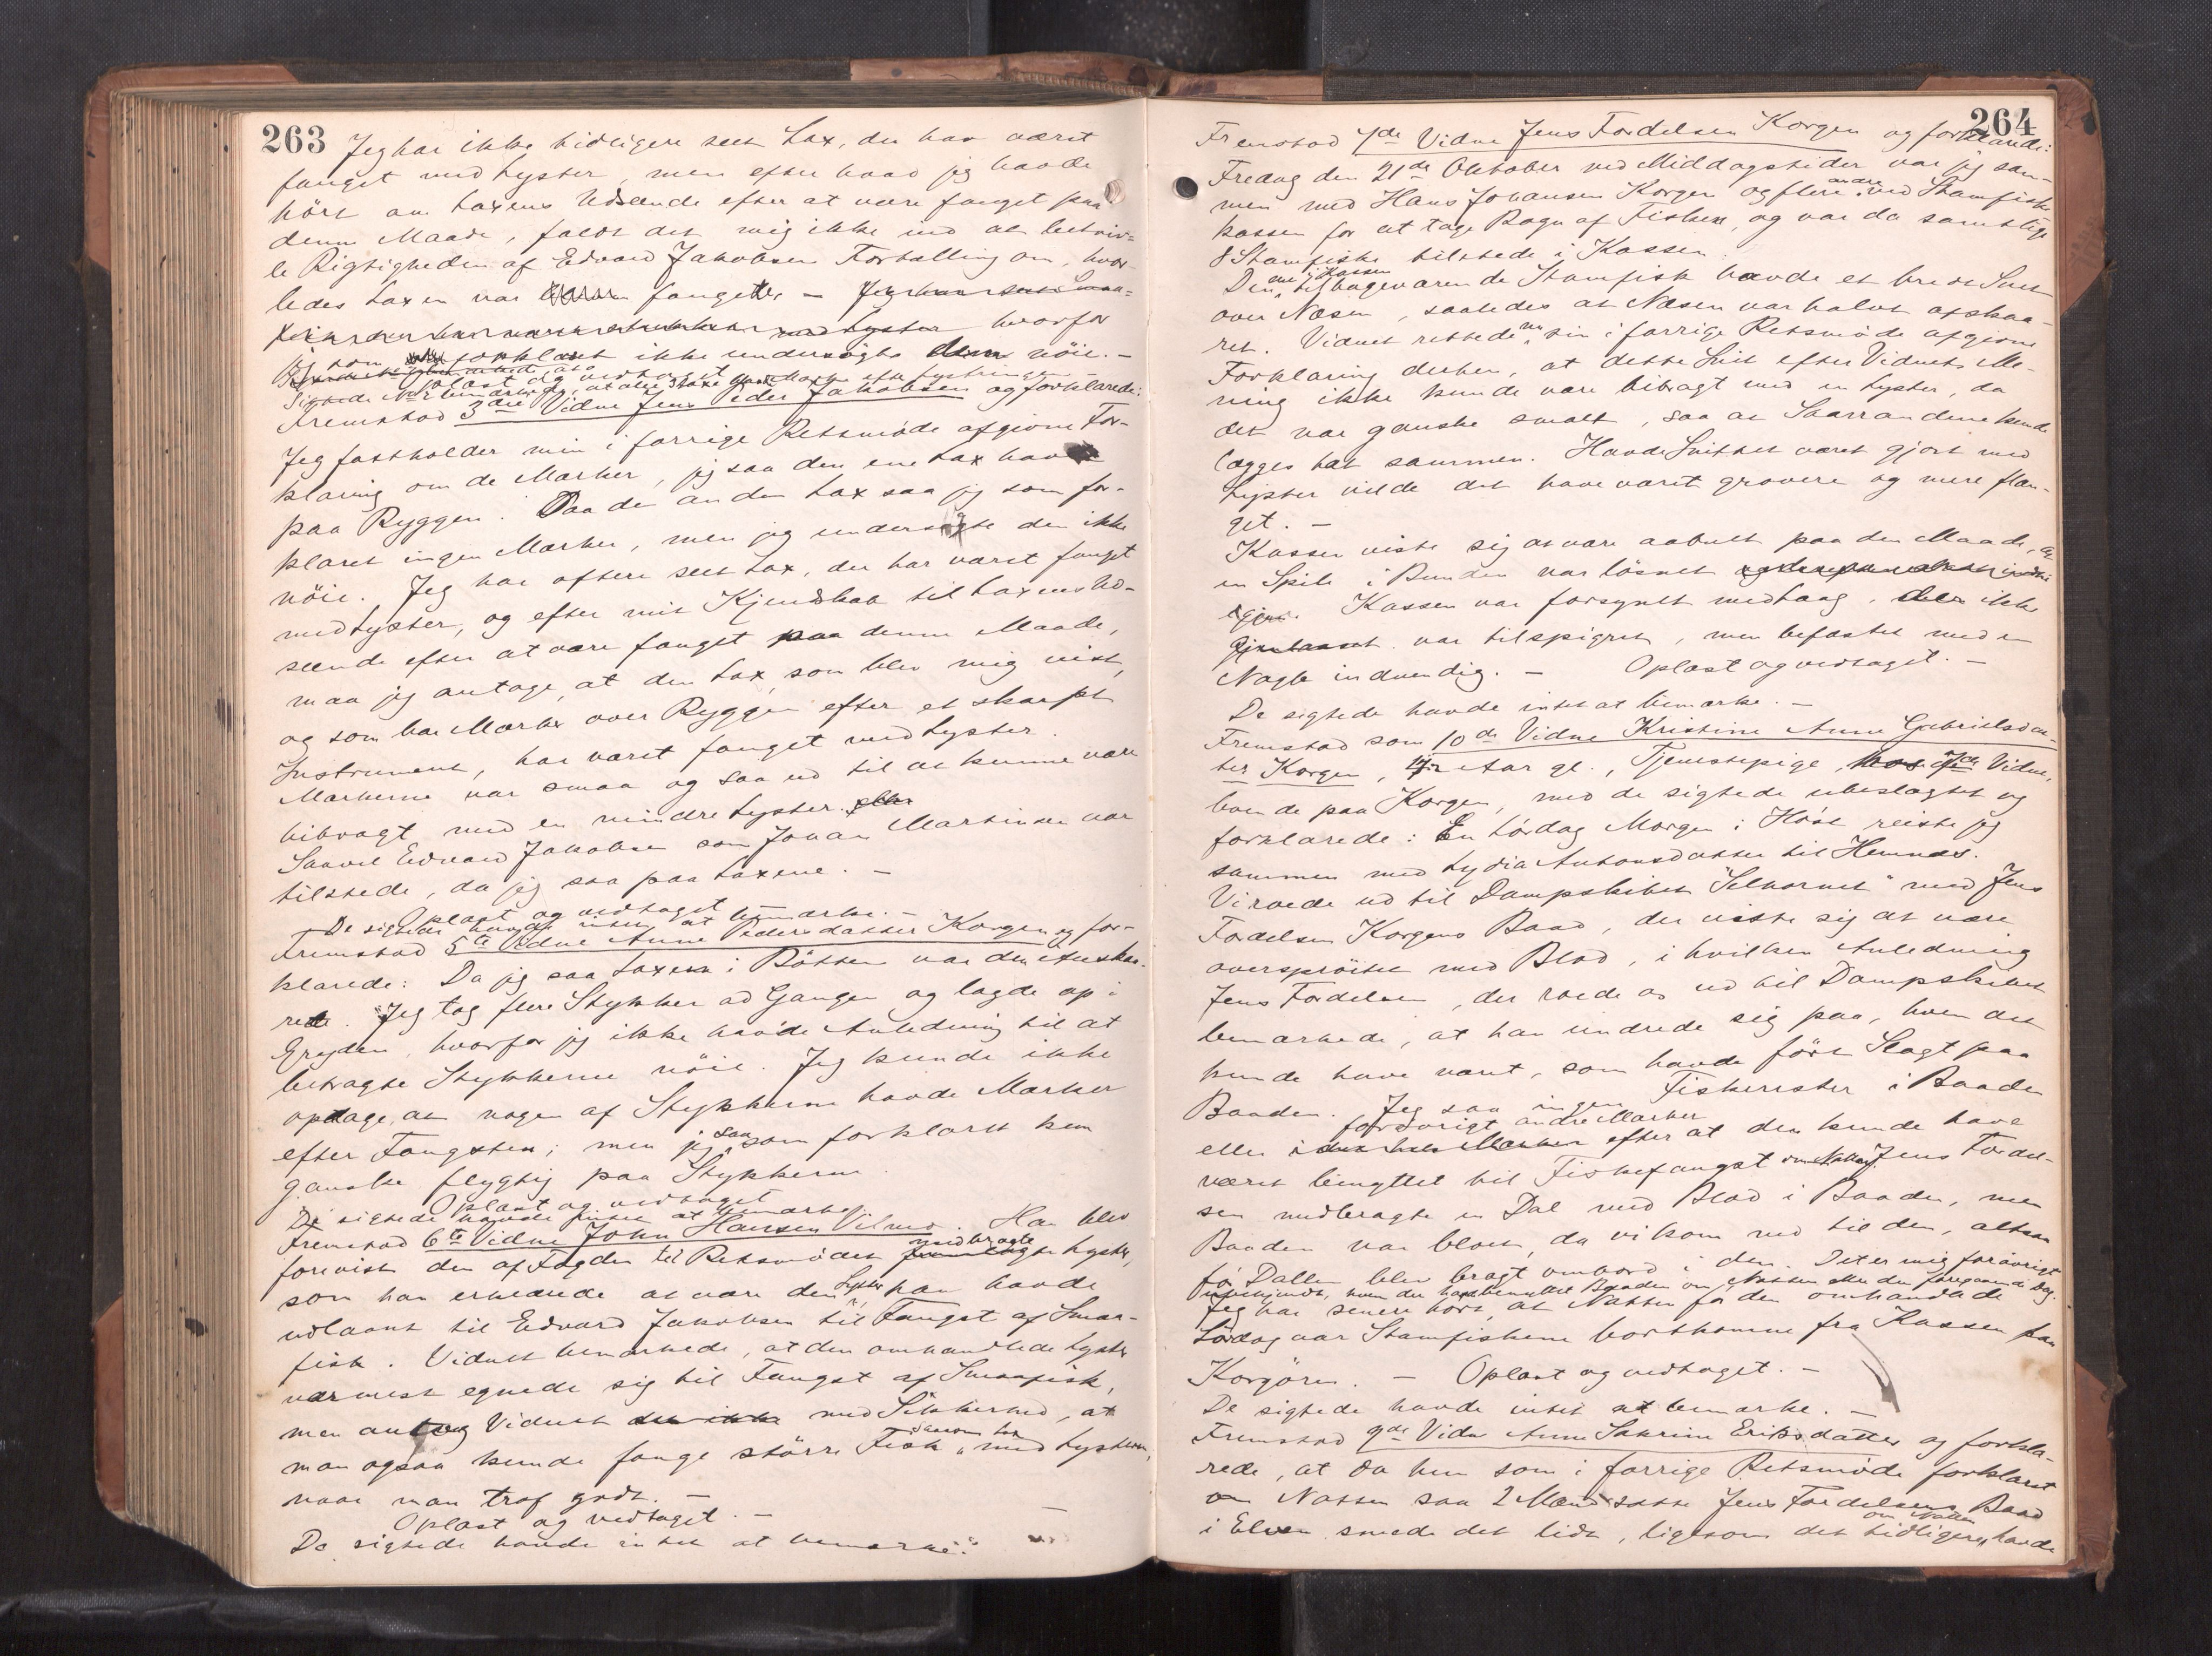 263
Jeg har ikke tidligere seet Lax, der har været
fanget med Lyster, men efter hvad jeg havde
hørt om Laxens Udseende efter at være fanget paa
denne Maade, faldt det mig ikke ind at betviv-
le Rigtigheden af Edvard Jakobsens Fortælling om, hvor-
ledes Laxen var fanget. –
med Lyster hvorfor
jeg som forklaret ikke undersøgte dem nöie. –
Oplæst og vedtaget
Fremstod 3die Vidne Jens Peder Jakobsen og forklarede:
Jeg fastholder min i forrige Retsmöde afgivne For-
klaring om de Mærker, jeg saa den ene Lax havde
paa Ryggen. Paa den anden Lax saa jeg som for-
klaret ingen Mærker, men jeg undersøgte den ikke
nöie. Jeg har oftere seet Lax, der har været fanget
med Lyster, og efter mit Kjendskab til Laxens Ud-
seende efter at være fanget paa denne Maade,
maa jeg antage, at den Lax, som blev mig vist,
og som har Mærker over Ryggen efter et skarpt
Instrument, har været fanget med Lyster.
Mærkerne var smaa og saa ud til at kunne være
tibragt med en mindre Lyster.
Saavel Edvard Jakobsen som Johan Martinsen var
tilstede, da jeg saa paa Laxene. –
Oplæst og vedtaget
De sigtede havde intet at bemærke. –
Fremstod 5te Vidne Anne Pedersdatter Korgen og for-
klarede: Da jeg saa Laxen i Bötten var den ituskaa-
ret. Jeg tog flere Stykker ad Gangen og lagde op i
Gryden, hvorfor jeg ikke havde Anledning til at
betragte Stykkerne nöie. Jeg kunde ikke
opdage, at nogen af Stykkerne havde Mærker
efter Fangsten; men jeg saa som forklaret kun
ganske flygtig paa Stykkerne.
Oplæst og vedtaget
De sigtede havde intet at bemærke
Fremstod 6te Vidne John Hansen Vilmo. Han blev
forevist den af Fogden til Retsmödet medbragte Lyster,
som han erklærede at være den Lyster han havde
udlaant til Edvard Jakobsen til Fangst af Smaa-
fisk. Vidnet bemærkede, at den omhandlede Lyster
nærmest egnede sig til Fangst af Smaafisk,
men antog Vidnet med Sikkerhed, at
man ogsaa kunde fange större Fisk saasom Lax med Lysteren,
naar man traf godt. –
Oplæst og vedtaget. –
De sigtede havde intet at bemærke. –
264
Fremstod 7de Vidne Jens Fordelsen Korgen og forklarede:
Fredag den 21de Oktober ved Middagstider var jeg sam-
men med Hans Johansen Korgen og flere andre ved Stamfiske-
kassen for at tage Rogn af Fisken, og var da samtlige
8 Stamfiske tilstede i Kassen.
Den ene i Kassen tilbageværende Stamfisk havde et bredt Snit
over Næsen, saaledes at Næsen var halvt afskaa-
ret. Vidnet rettede nu sin i forrige Retsmöde afgivne
Forklaring derhen, at dette Snit efter Vidnets Me-
ning ikke kunde være tibragt med en Lyster, da
det var ganske smalt, saa at Saarrandene kunde
lægges tæt sammen. Havde Snittet været gjort med
Lyster vilde det have været grovere og mere flæn-
get. –
Kassen viste sig at være aabnet paa den Maade, at
en Spile i Bunden var lösnet
Kassen var forsynet med Laag, der ikke
var tilspigret, men befæstet med en
Nagle indvendig. – Oplæst og vedtaget. –
De sigtede havde intet at bemærke. –
Fremstod som 10de Vidne Kristine Anne Gabrielsdat-
ter Korgen, Aar gl., Tjenestepige, hos 7de Vidne,
boende paa Korgen, med de sigtede ubeslægtet og
forklarede: En Lördag Morgen i Höst reiste jeg
sammen med Lydia Antonsdatter til Hemnæs.
Vi roede ud til Dampskibet "Selhornet" med Jens
Fordelsen Korgens Baad, der viste sig at være
oversprøitet med Blod, i hvilken Anledning
Jens Fordelsen, der roede os ud til Dampskibet
bemærkede, at han undrede sig paa, hvem det
kunde have været, som havde fört Slagt paa
Baaden. Jeg saa ingen Fiskerester i Baaden
eller forövrigt andre Mærker efter at den kunde have
været benyttet til Fiskefangst om Natten. Jens Fordel-
sen medbragte en Dal med Blod i Baaden, men
Baaden var blodt, da vi kom ned til den, altsaa
för Dallen blev bragt ombord i den. Det er mig forövrigt
ubekjendt, hvem der har benyttet Baaden om Natten eller den foregaaende Dag.
Jeg har senere hört, at Natten för den omhandlede
Lördag var Stamfiskene bortkomne fra Kassen paa
Korgören. – Oplæst og vedtaget. –
De sigtede havde intet at bemærke. –
Fremstod 9de Vidne Anne Katrine Eriksdatter og forkla-
rede, at da hun som i forrige Retsmöde forklaret
om Natten saa 2 Mænd sætte Jens Fordelsens Baad
i Elven, snede det lidt, ligesom det tidligere om Natten havde